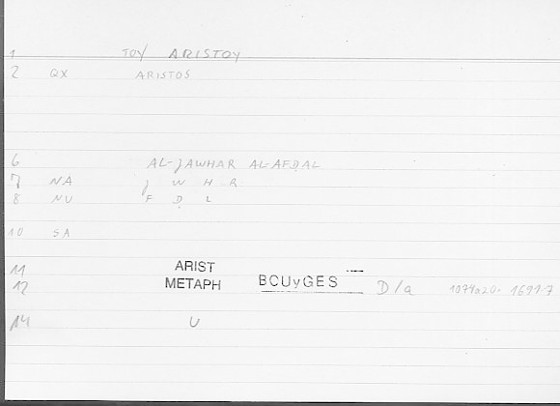 1 TOY ARISTOY
2 QX ARISTOS
6 AL-JAWHAR AL-AFḌAL
7 NA J W H R
8 NU F Ḍ L
10 SA
11 ARIST
12 METAPH BCUyGES D/a 1074a20- 1699.7
14 U